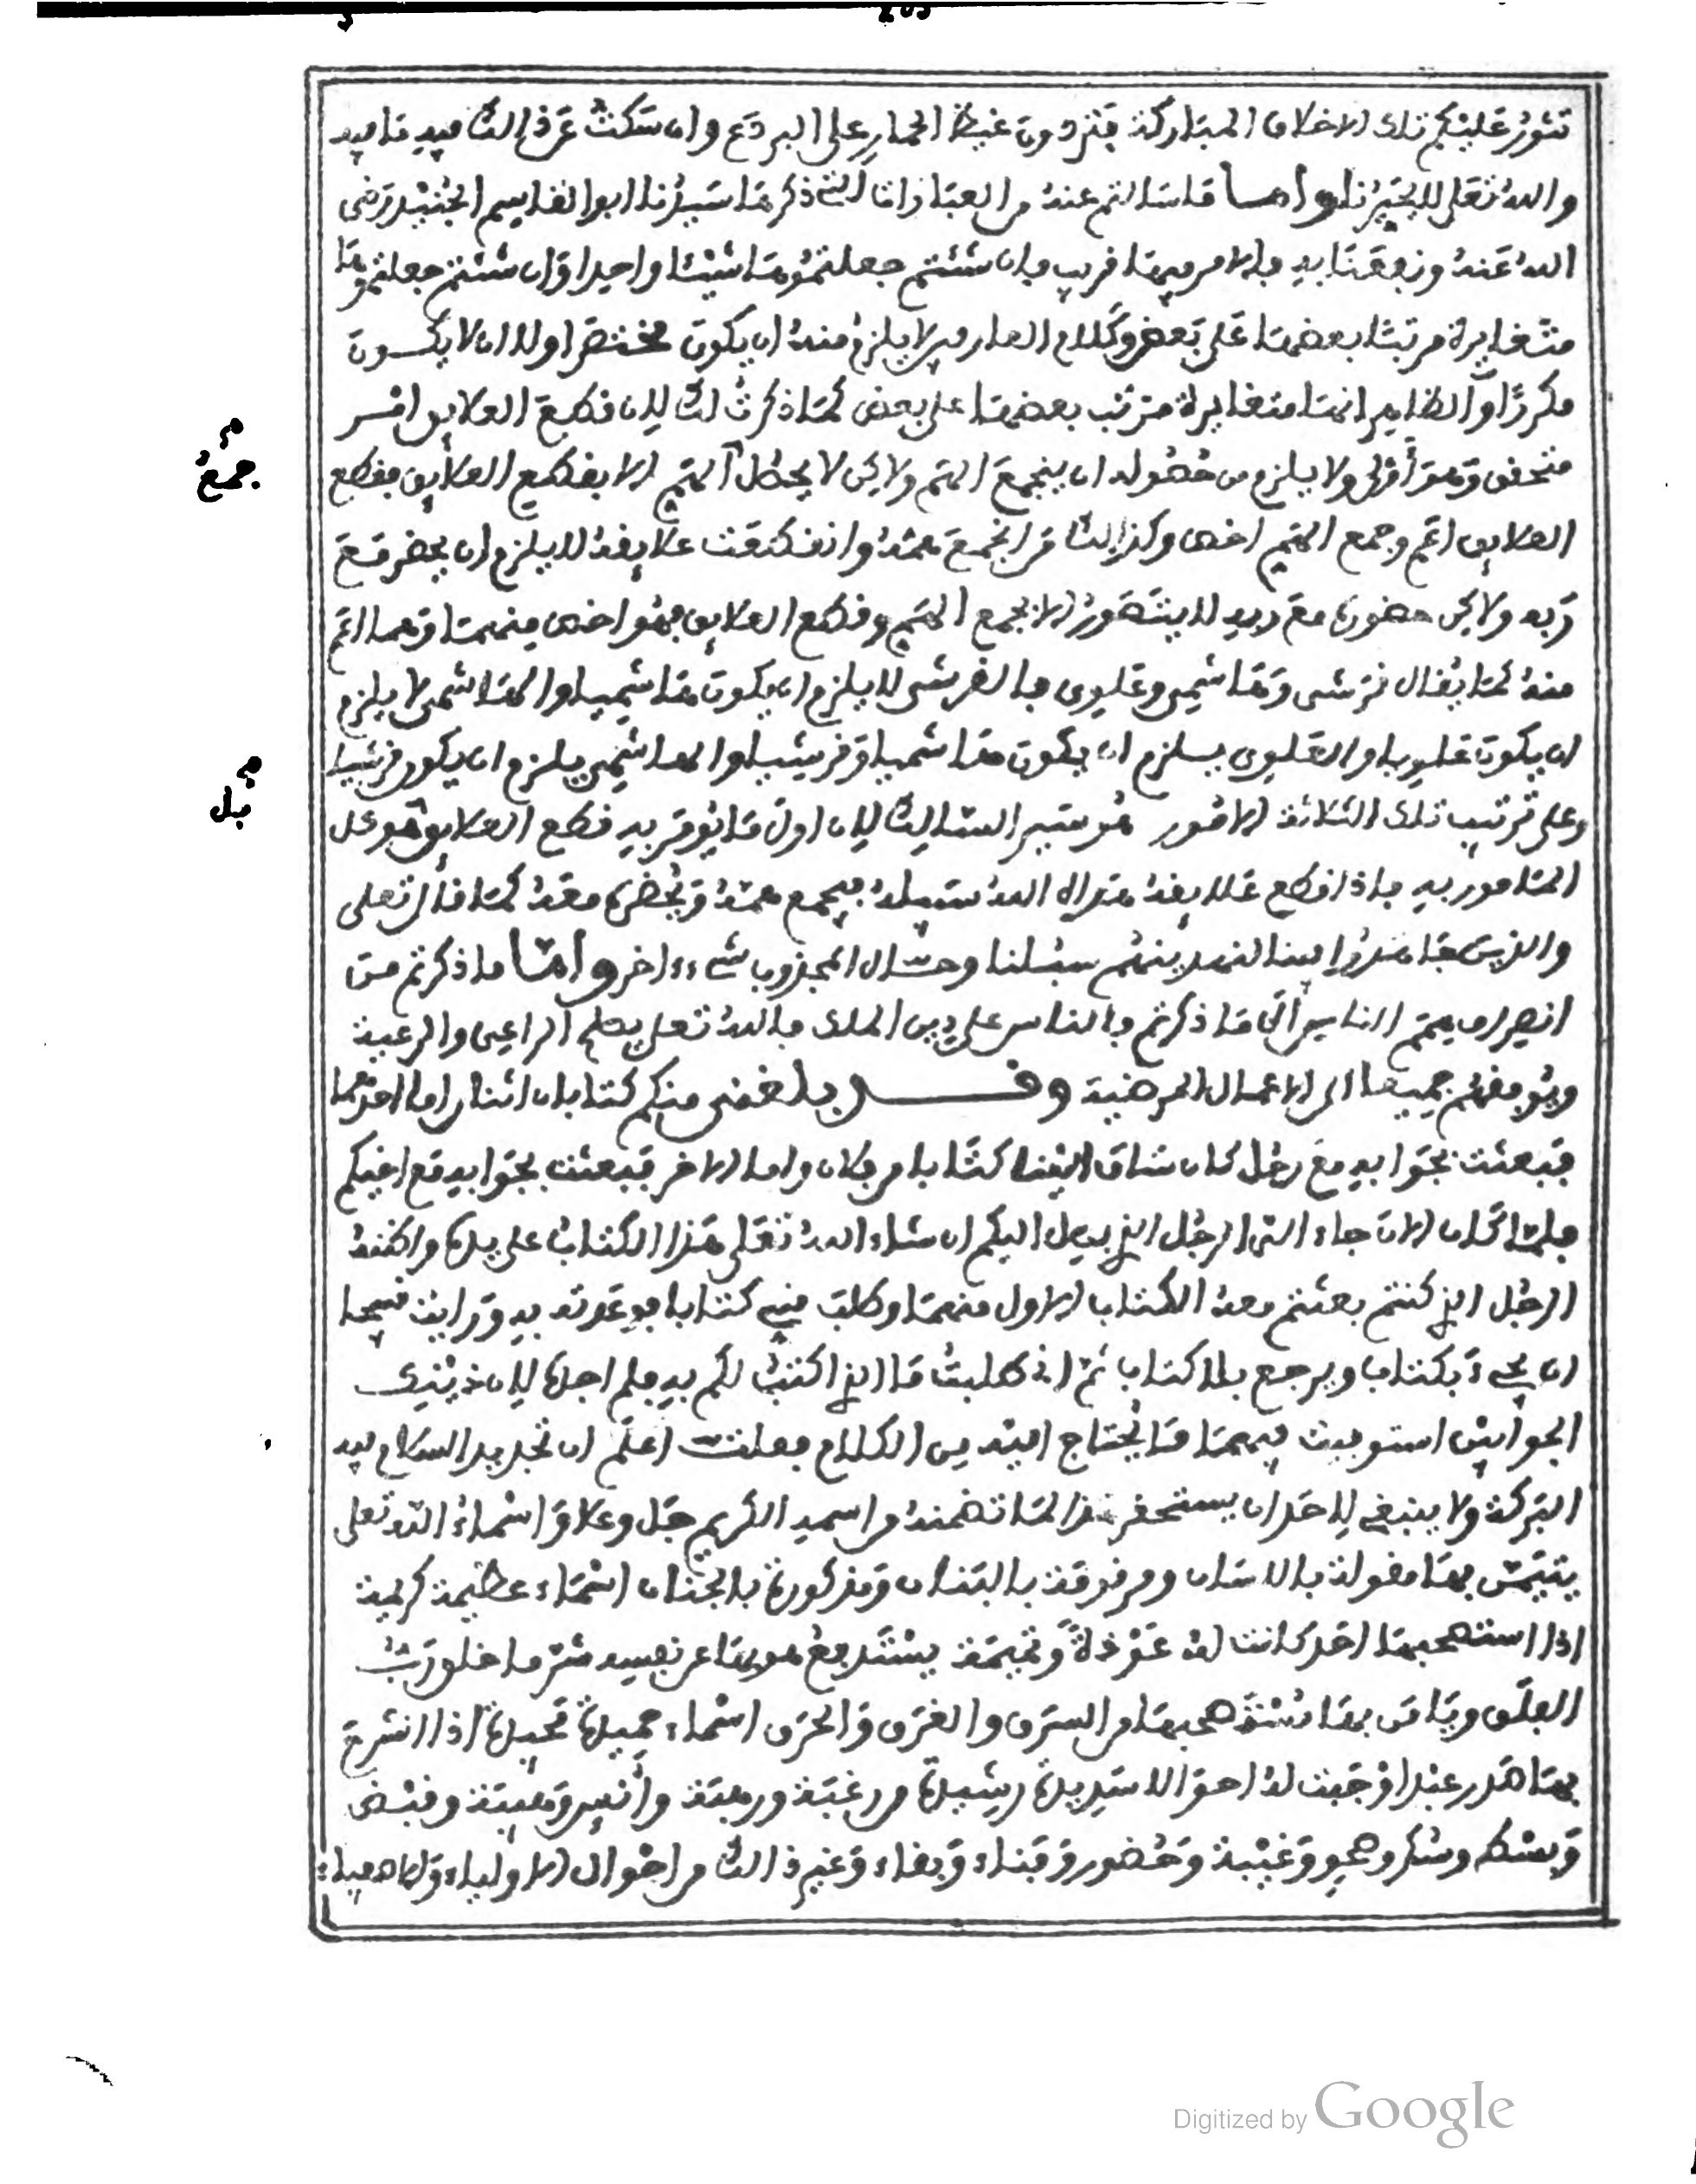 تثور عليكم تلك الاخلاق المباركة فتزدون غيظ الحمار على البردع وان سكت عن ذالك فيه ما فيه
والله تعلى لا يخيرنا واما ما سالتم عنه من العبارات التى ذكرها سيدنا ابو القاسم الجنيد رضى
الله عنه ونفعنا به فالامر فيها قريب فان شئتم جعلتموها شيئا واحدا وان شئتم جعلتموها
متغايرة مرتبا بعضها على بعض وكلام العارفين لا يلزم منه ان يكون مختصرا ولا ان لا يكون
مكررا والظاهر انها متغايرة مترتب بعضها على بعض كما ذكرت لك لان قطع العلايق امر
متحقق وهو أول ولا يلزم من حصوله ان ينجمع الهم ولاكن لا يحصل الهم الا بقطع العلايق فقطع
العلايق اعم وجمع الهم اخص وكذالك من انجمع همه وانقطعت علايقه لا يلزم ان يحضر مع
ربه ولاكن حضوره مع ربه لا يتصور الا بجمع الهم وقطع العلايق فهو اخص منهما وهما اعم
منه كما يقال قرشى وهاشمى وعلوى فالقرشى لا يلزم ان يكون هاشميا والهاشمى لا يلزم
ان يكون علويا والعلوى يلزم ان يكون هاشميا وقرشيا والهاشمى يلزم ان يكون قرشيا
وعلى ترتيب تلك الثلاثة الامور هو سير السالك لان اول ما يومر به قطع العلايق فهو عمل
المامور به فاذا قطع علايقه هداه الله سبيله فيجمع همه ويحضره معه كما قال تعلى
والذين جاهدوا فينا لنهدينهم سبلنا وحال المجذوب شىء ءاخر واما ما ذكرتم من
انصراف همم الناس الى ما ذكرتم فالناس على دين الملك فالله تعلى يصلح الراعى والرعية
ويوفقهم جميعا الى الاعمال المرضية وقد بلغنى منكم كتابان اثنان اما احدهما
فبعثت بجوابه مع رجل كان ساق الينا كتابا من فلان واما الاخر فبعثت بجوابه مع اخيكم
فلما كان الان جاء الى الرجل الذى يصل اليكم ان شاء الله تعلى هذا الكتاب على يده واظنه
الرجل الذى كنتم بعثتم معه الكتاب الاول منهما وطلب منى كتابا فوعدته به ورايت قبيحا
ان يجىء بكتاب ويرجع بلا كتاب ثم انى طلبت ما الذى اكتب لكم به فلم اجده لان ذينك
الجوابين استوفيت فيهما ما يحتاج اليه من الكلام فعلت اعلم ان تجديد السلام فيه
البركة ولا ينبغى لاحد ان يستحقر هذا لما تضمنه من اسمه الكريم جل وعلا واسماء الله تعلى
يتيمن بها مقولة باللسان ومرقومة بالبنان ومذكورة بالجنان اسماء عظيمة كريمة
اذا استصحبها احد كانت له عوذة وتميمة يستدفع هو بها عن نفسه شر ما خلق رب
الفلق ويامن بها مستصحبها من السرق والغرق والحرق اسماء جميلة جليلة اذا انشرح
بها صدر عبد اوجبت له احوالا سديدة رشيدة من رغبة ورهبة وأنس وهيبة وقبض
وبسط وسكر وصحو وغيبة وحضور وفناء وبقاء وغير ذالك من احوال الاولياء والاصفياء
جمع
قبل
Digitized by Google